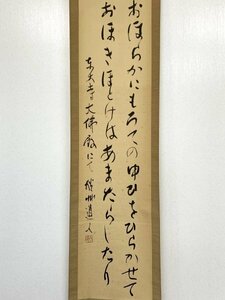 おほらかにもろてのゆひをひらかせて
おほきほとけはあまたらしたり
東大寺大佛殿にて 秋艸道人